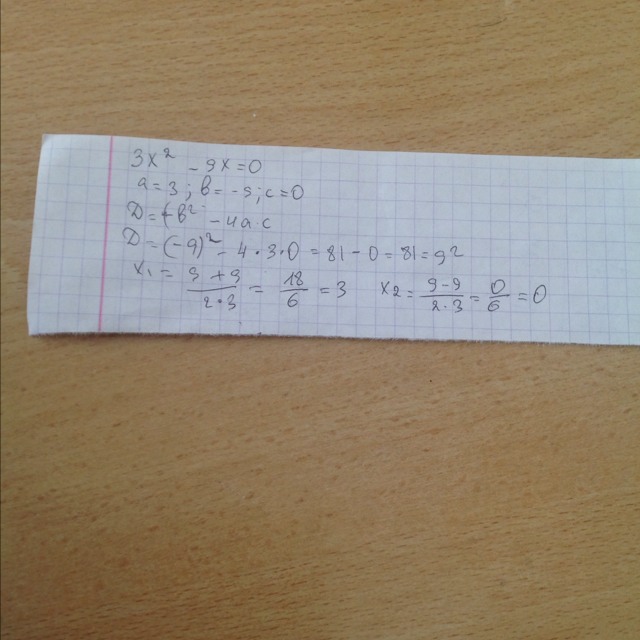 3x² - 9x = 0
a = 3; b = -9; c = 0
D = b² - 4ac
D = (-9)² - 4·3·0 = 81 - 0 = 81 = 9²
x₁ = (9+9)/(2·3) = 18/6 = 3 x₂ = (9-9)/(2·3) = 0/6 = 0